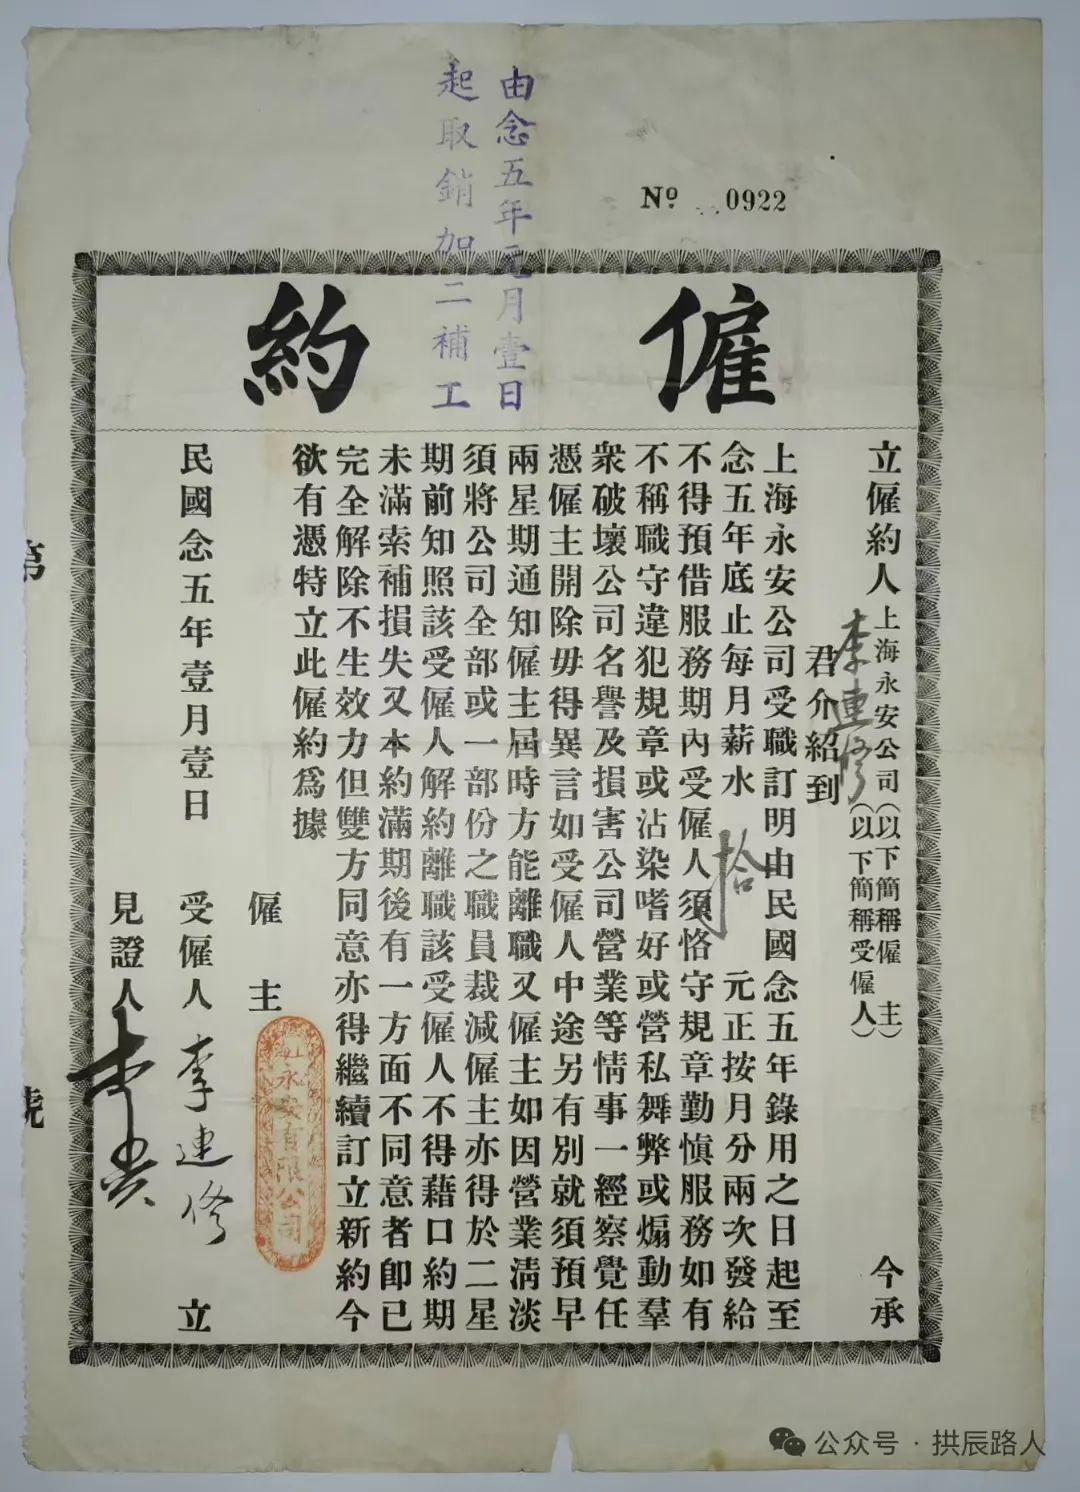 由念五年元月壹日
起取銷加二補工
Nº 0922
僱約
立僱約人
上海永安公司(以下簡稱僱主)
李連修(以下簡稱受僱人)
今承
君介紹到
上海永安公司受職訂明由民國念五年錄用之日起至
念五年底止每月薪水拾元正按月分兩次發給
不得預借服務期內受僱人須恪守規章勤慎服務如有
不稱職守違犯規章或沾染嗜好或營私舞弊或煽動羣
衆破壞公司名譽及損害公司營業等情事一經察覺任
憑僱主開除毋得異言如受僱人中途另有別就須預早
兩星期通知僱主屆時方能離職又僱主如因營業淸淡
須將公司全部或一部份之職員裁減僱主亦得於二星
期前知照該受僱人解約離職該受僱人不得藉口約期
未滿索補損失又本約滿期後有一方面不同意者卽已
完全解除不生效力但雙方同意亦得繼續訂立新約今
欲有憑特立此僱約爲據
僱主
永安有限公司
民國念五年壹月壹日
受僱人 李連修 立
見證人
第 號
公众号 · 拱辰路人